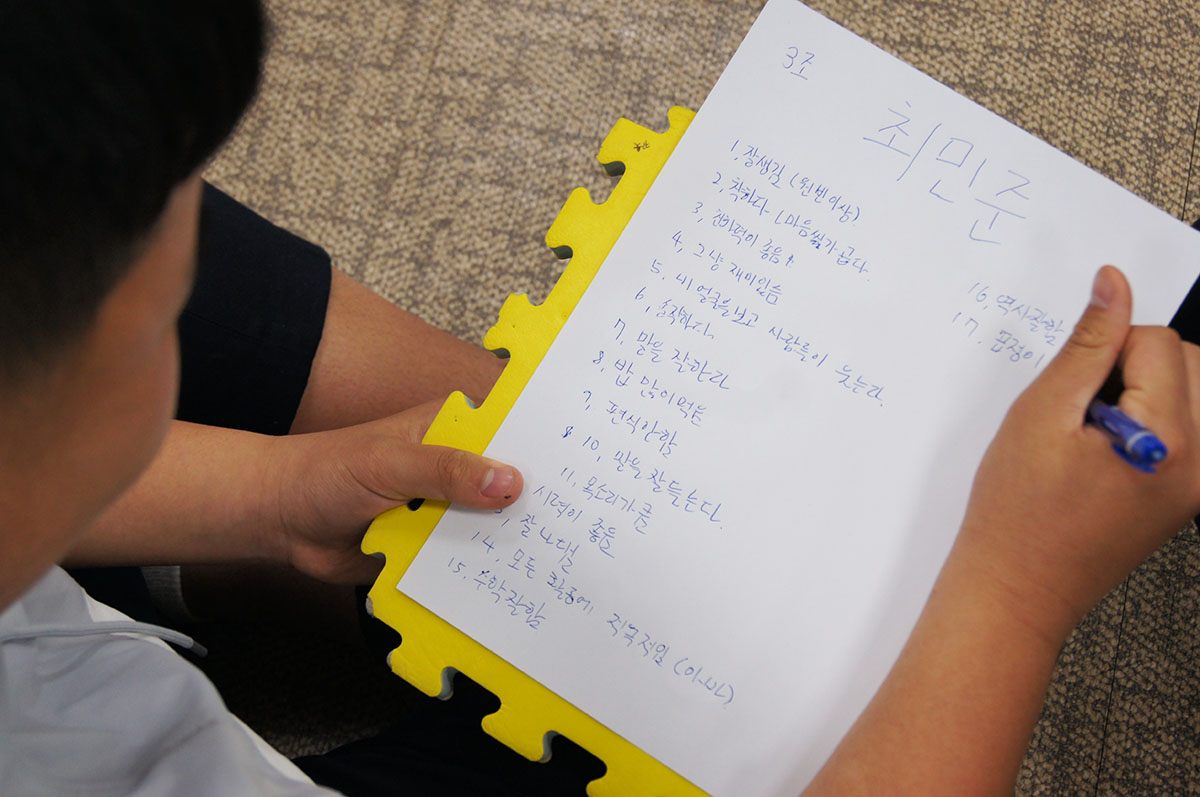 3조
최민준
1. 잘생김 (원빈이상)
2. 착하다 (마음씨가 곱다.
3. 친화력이 좋음
4. 그냥 재미있음
5. 내 얼굴을 보고 사람들이 웃는다.
6.
7. 말을 잘한다
8. 밥 많이 먹는
9. 편식안함
10. 말을 잘듣는다.
11. 목소리가 큼
시력이 좋음
잘
14. 모든 활동에 적극적임
15. 수학잘함
16. 역사잘함
17. 표정이